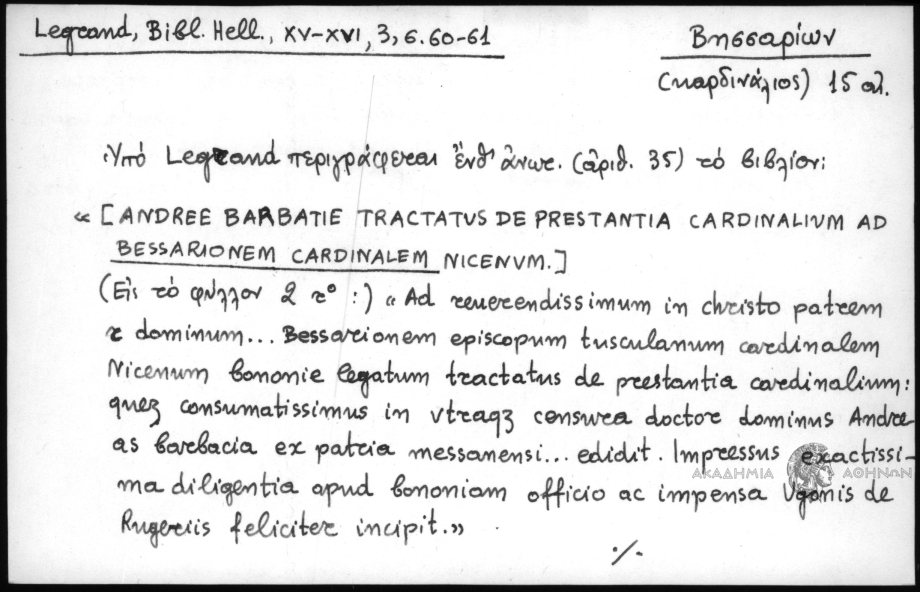 Legrand, Bibl. Hell., XV-XVI, 3, σ. 60-61
Βησσαρίων
(καρδινάλιος) 15 αἰ.
Ὑπό Legrand περιγράφεται ἔνθ' ἀνωτ. (ἀριθ. 35) τό βιβλίον:
« [ANDREE BARBATIE TRACTATVS DE PRESTANTIA CARDINALIVM AD
BESSARIONEM CARDINALEM NICENVM.]
(Εἰς τό φύλλον 2 rº :) « Ad reuerendissimum in christo patrem
τ dominum... Bessarionem episcopum tusculanum cardinalem
Nicenum bononie legatum tractatus de prestantia cardinalium:
queʒ consumatissimus in vtraqʒ censura doctor dominus Andre
as barbacia ex patria messanensi... edidit. Impressus exactissi-
ma diligentia apud bononiam officio ac impensa Vgonis de
Rugeriis feliciter incipit.»
ΑΚΑΔΗΜΙΑ ΑΘΗΝΩΝ
./.